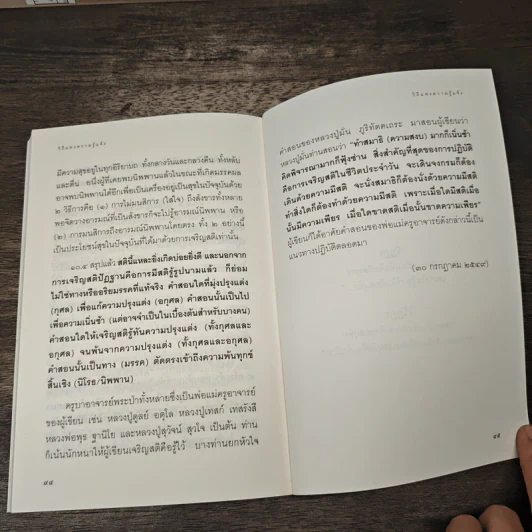 วิถีแห่งความรู้แจ้ง
มีความสุขอยู่ในทุกอิริยาบถ ทั้งกลางวันและกลางคืน ทั้งหลับ
และตื่น อนึ่งผู้ที่เคยพบนิพพานแล้วในขณะที่เกิดมรรคผล
อาจพบนิพพานได้อีกเพื่อเป็นเครื่องอยู่เป็นสุขในปัจจุบันด้วย
๒ วิธีการคือ (๑) การไม่มนสิการ (ใส่ใจ) ถึงสังขารทั้งหลาย
พอจิตวางอารมณ์ที่เป็นสังขารก็จะไปรู้อารมณ์นิพพาน หรือ
(๒) การมนสิการถึงอารมณ์นิพพานโดยตรง ทั้ง ๒ อย่างนี้
เป็นประโยชน์สุขในปัจจุบันที่ได้มาด้วยการเจริญสติเท่านั้น
๑๐.๔ สรุปแล้ว สตินี้แหละยิ่งเกิดบ่อยยิ่งดี และนอกจาก
การเจริญสติปัฏฐานคือการมีสติรู้รูปนามแล้ว ก็ย่อม
ไม่ใช่ทางหรืออริยมรรคที่แท้จริง คำสอนใดที่มุ่งปรุงแต่ง
(กุศล) เพื่อแก้ความปรุงแต่ง (อกุศล) คำสอนนั้นเป็นไป
เพื่อความเนิ่นช้า (แต่อาจจำเป็นในเบื้องต้นสำหรับบางคน)
คำสอนใดให้เจริญสติรู้ทันความปรุงแต่ง (ทั้งกุศลและ
อกุศล) จนพ้นจากความปรุงแต่ง (ทั้งกุศลและอกุศล)
คำสอนนั้นเป็นทาง (มรรค) ตัดตรงเข้าถึงความพ้นทุกข์
สิ้นเชิง (นิโรธ/นิพพาน)
ครูบาอาจารย์พระป่าทั้งหลายซึ่งเป็นพ่อแม่ครูอาจารย์
ของผู้เขียน เช่น หลวงปู่ดูลย์ อตุโล หลวงปู่เทสก์ เทสรังสี
หลวงพ่อพุธ ฐานิโย และหลวงปู่สุวัจน์ สุวโจ เป็นต้น ท่าน
ก็เน้นนักหนาให้ผู้เขียนเจริญสติคือรู้ไว้ บางท่านยกหัวใจ
๙๔
วิถีแห่งความรู้แจ้ง
คำสอนของหลวงปู่มั่น ภูริทัตตเถระ มาสอนผู้เขียนว่า
หลวงปู่มั่นท่านสอนว่า "ทำสมาธิ (ความสงบ) มากก็เนิ่นช้า
คิดพิจารณามากก็ฟุ้งซ่าน สิ่งสำคัญที่สุดของการปฏิบัติ
คือการเจริญสติในชีวิตประจำวัน จะเดินจงกรมก็ต้อง
เดินด้วยความมีสติ จะนั่งสมาธิก็ต้องนั่งด้วยความมีสติ
ทำสิ่งใดก็ต้องทำด้วยความมีสติ เพราะเมื่อใดมีสติเมื่อ
นั้นมีความเพียร เมื่อใดขาดสติเมื่อนั้นขาดความเพียร"
ผู้เขียนก็ได้อาศัยคำสอนของพ่อแม่ครูอาจารย์ดังกล่าวนี้เป็น
แนวทางปฏิบัติตลอดมา
(๓๐ กรกฎาคม ๒๕๔๙)
๙๕